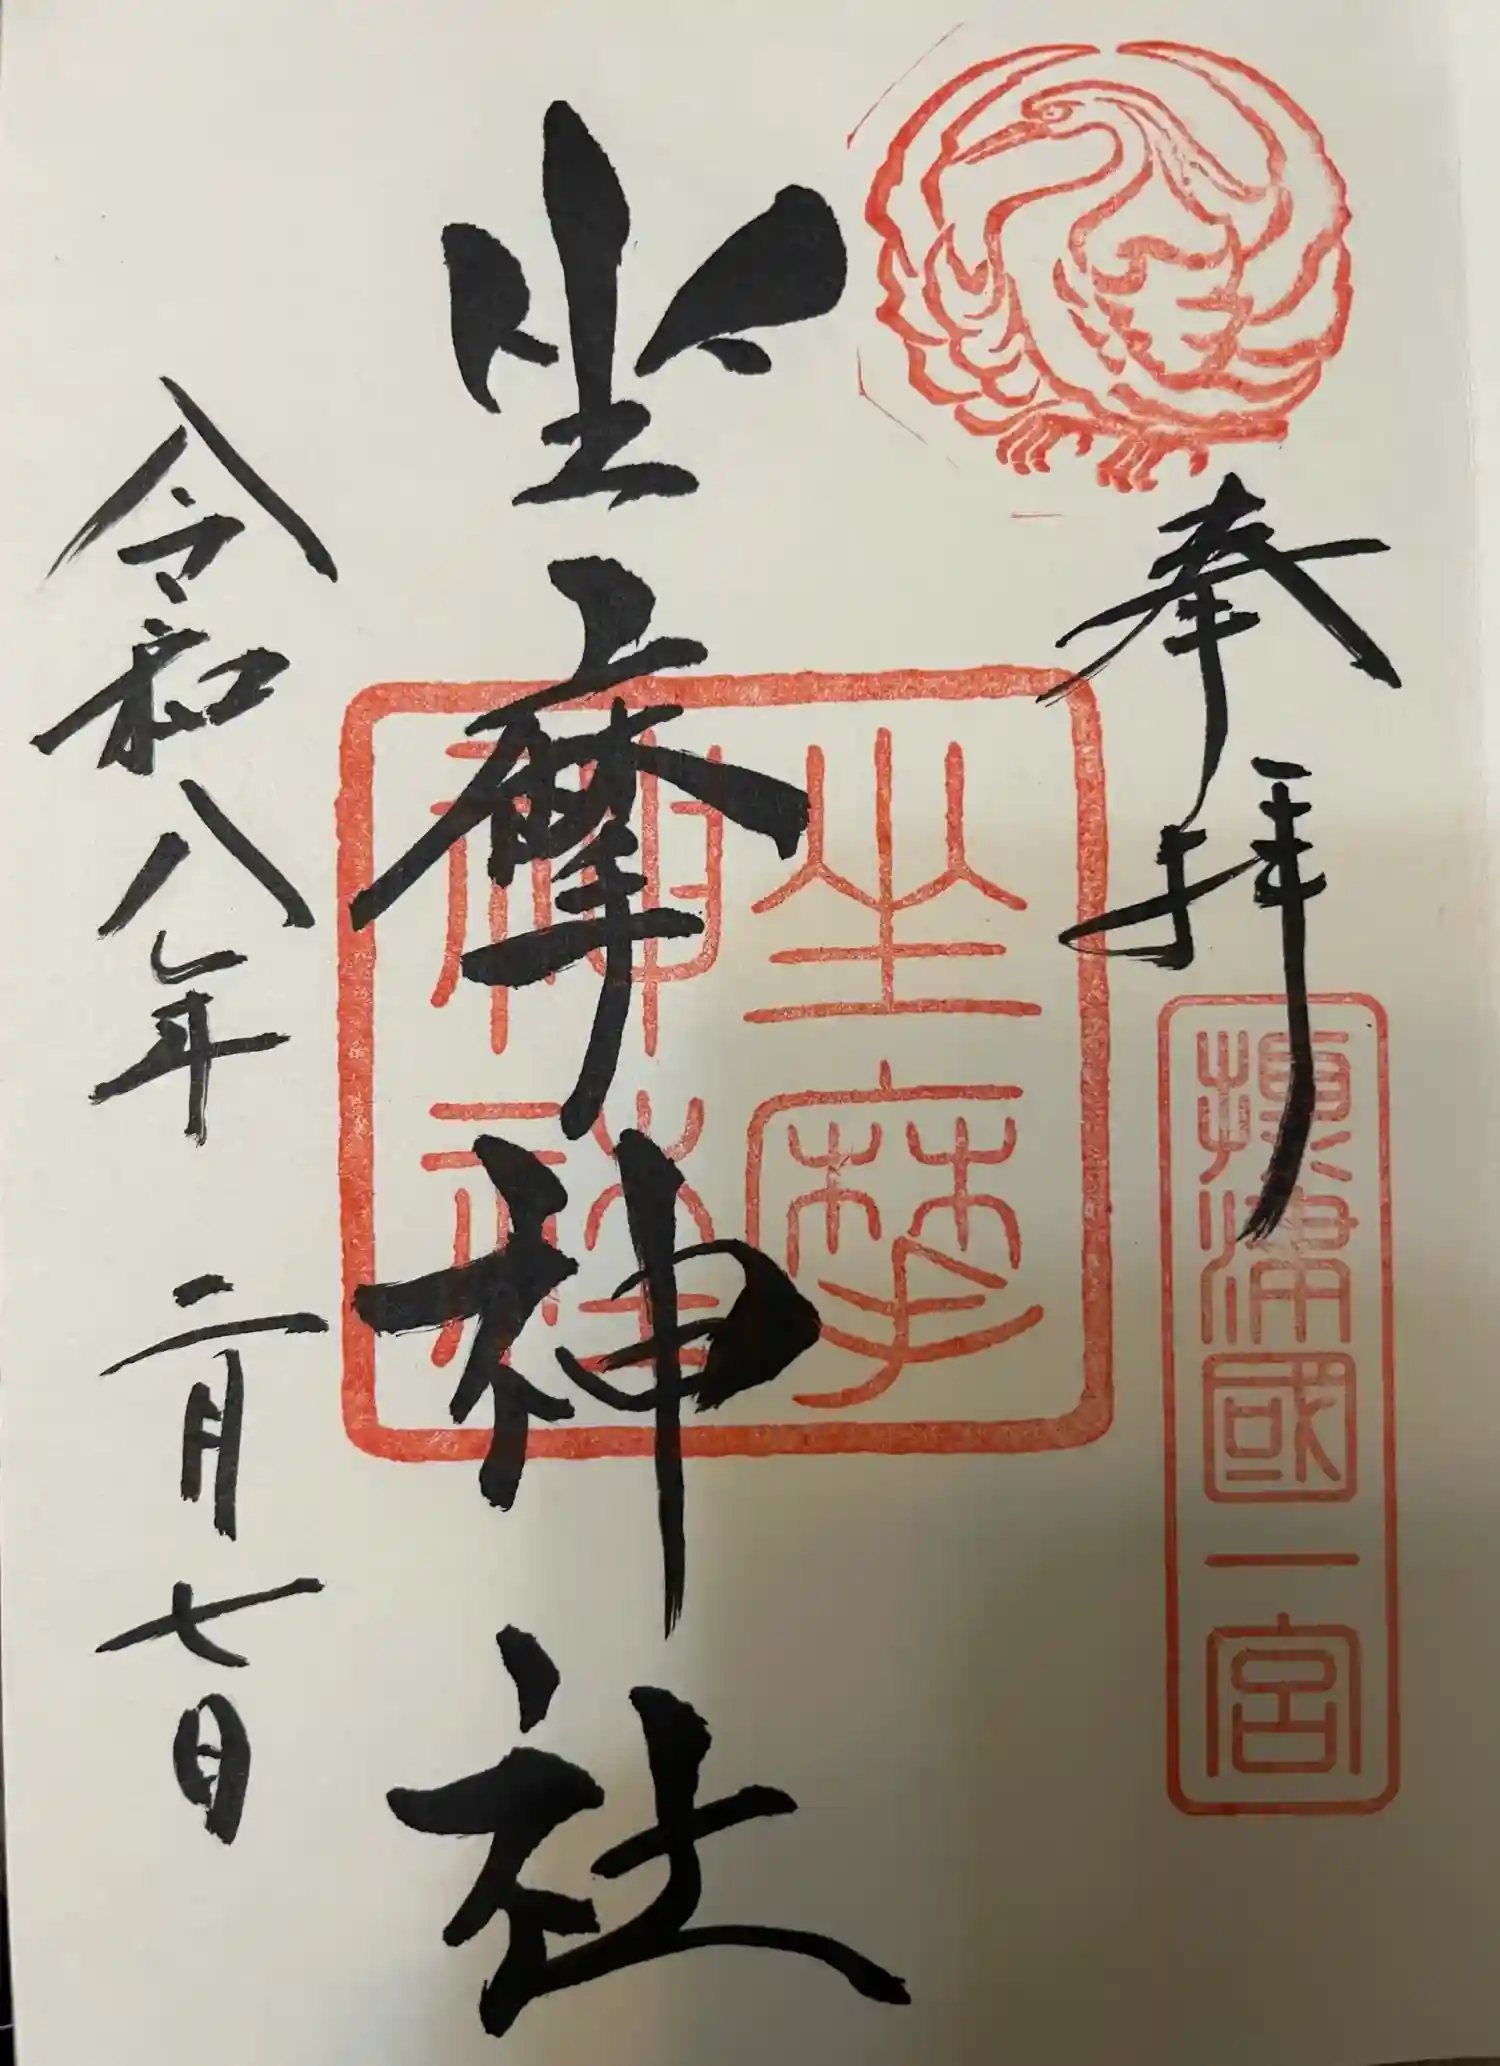 奉拝
攝津國一宮
坐摩神社
坐摩
神社
令和八年 二月七日